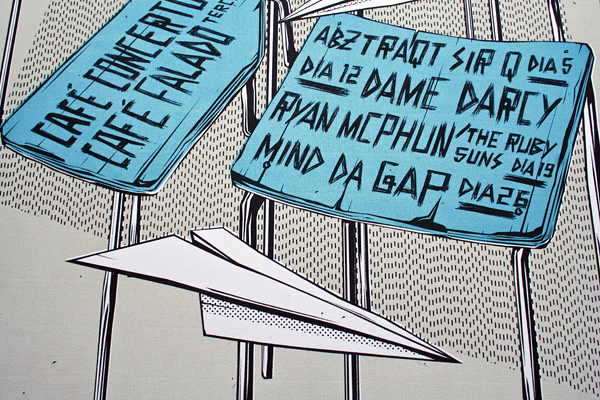 CAFÉ CONCERTO
CAFÉ FALADO
ABZTRAQT SIR Q DIA 5
DIA 12 DAME DARCY
RYAN MCPHUN/THE RUBY SUNS DIA 19
MIND DA GAP DIA 26